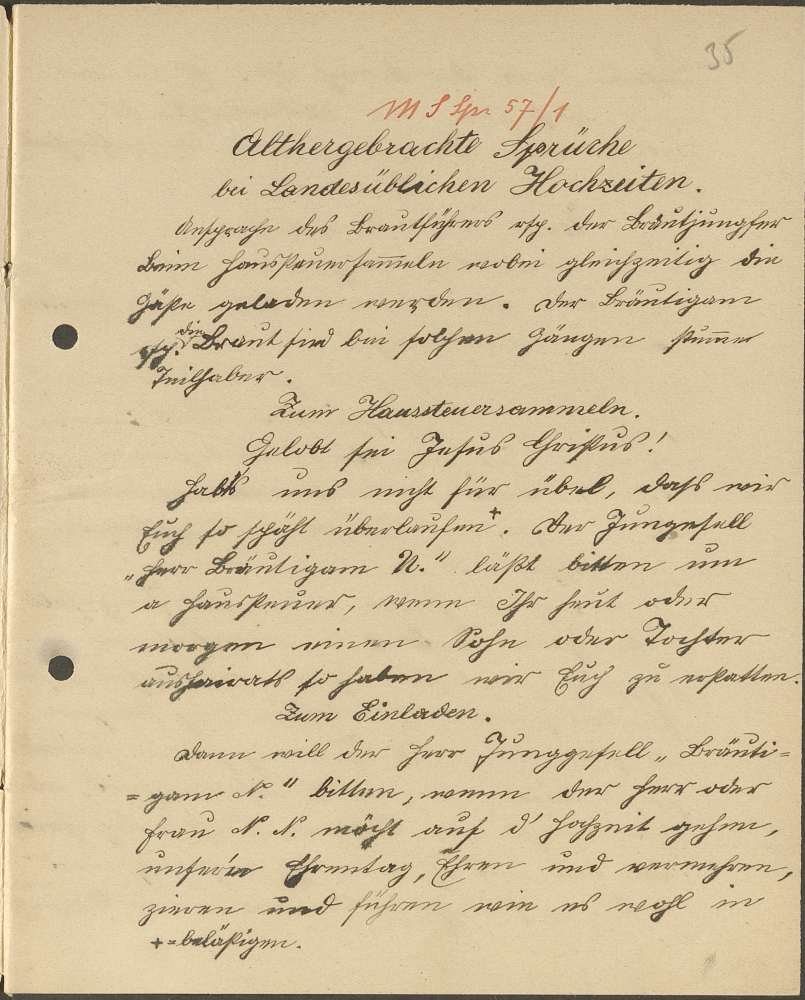 35
M S Spr 57/1
Althergebrachte Sprüche
bei Landesüblichen Hochzeiten.
Ansprache des Brautführers rsp. der Brautjungfer
Beim Haussteuersam̅eln wobei gleichzeitig die
Gäste geladen werden. Der Bräutigam
rsp. die Braut sind bei solchen Gängen stum̅e
Teilhaber.
Zum Haussteuersammeln.
Gelobt sei Jesus Christus!
Habt's uns nicht für übel, daß wir
Euch so späht überlaufen+. Der Jungesell
„Herr Bräutigam N." läßt bitten um
a Haussteuer, wenn Ihr heut oder
morgen einen Sohn oder Tochter
ausheirats so haben wir Euch zu erstatten.
Zum Einladen.
Dann will der Herr Junggesell „Bräuti=
=gam N." bitten, wenn der Herr oder
Frau N. N. möcht auf d' Hochzeit gehen,
unser'n Ehrentag, Ehren und vermehren,
zieren und führen wie es wohl in
+=belästigen.